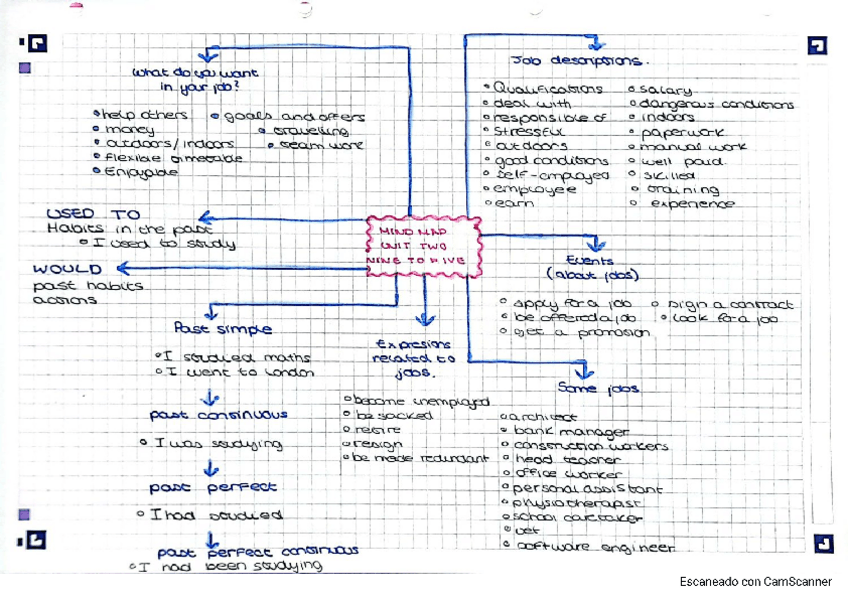 What do you want
in your job?
help others
goals and offers
money
travelling
outdoors/indoors
team work
flexible timetable
Enjoyable
Job descriptions.
Qualifications
salary
deal with
dangerous conditions
responsible of
indoors
Stressful
paperwork
outdoors
manual work
good conditions
well paid
self-employed
skilled
employee
training
earn
experience
USED TO
Habits in the past
I used to study
WOULD
past habits
actions
MIND MAP
UNIT TWO
NINE TO FIVE
Events
(about jobs)
apply for a job
sign a contract
be offered a job
look for a job
get a promotion
Past simple
I studied maths
I went to London
past continuous
I was studying
past perfect
I had studied
past perfect continuous
I had been studying
Expresions
related to
jobs.
become unemployed
be sacked
retire
resign
be made redundant
Some jobs
architect
bank manager
construction workers
head teacher
office worker
personal assistant
physiotherapist
school caretaker
vet
software engineer
Escaneado con CamScanner